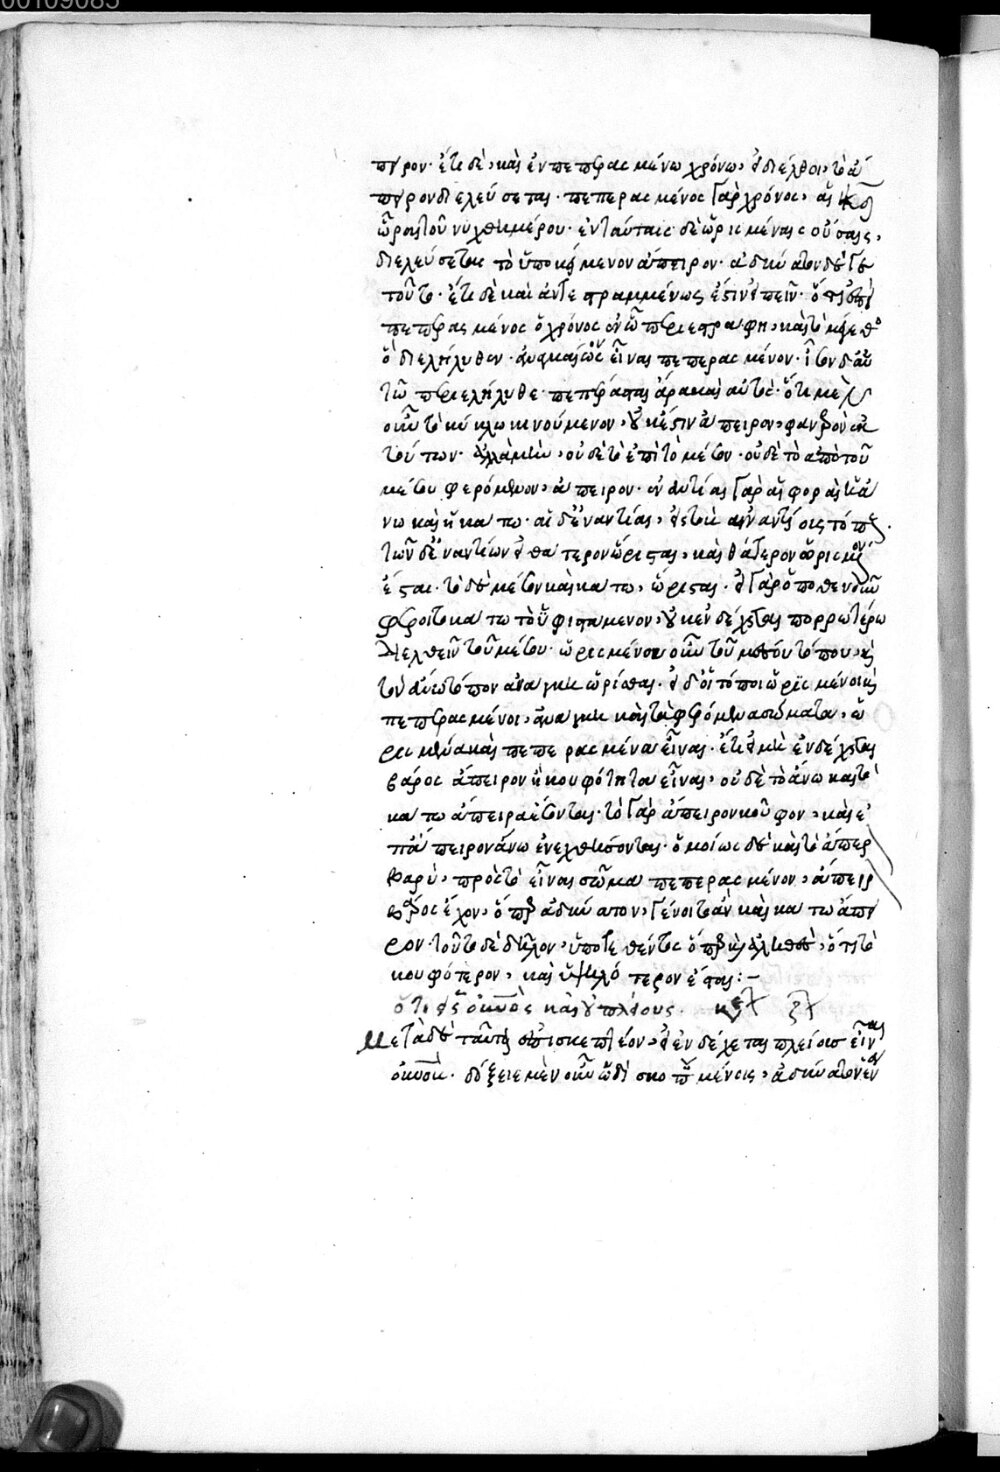 00109085
πειρον· ἔτι δὲ, καὶ ἐν πεπερασμένω χρόνω, εἰ διέλθοι, τὸ ἄ
πειρον διελεύσεται· πεπερασμένος γὰρ χρόνος, αἱ κδ
ὧραι τοῦ νυχθημέρου· ἐν ταύταις δὲ ὡρισμέναις οὔσαις,
διελεύσεται τὸ ὑποκείμενον ἄπειρον· ἀδύνατον δὲ
τοῦτο· ἔτι δὲ καὶ ἀντεστραμμένως ἔστιν εἰπεῖν· ὅτι ἐπεὶ
πεπερασμένος ὁ χρόνος ἐν ὧ περιεγράφη, καὶ τὸ μέγεθος
ὃ διελήλυθεν· ἀναγκαίως εἶναι πεπερασμένον·
τῶ περιελήλυθε· πεπέρανται ἄρα καὶ αὐτός· ὅτι μὲν
οὖν τὸ κύκλω κινούμενον, οὐκ ἔστιν ἄπειρον, φανερὸν ἐκ
τούτων· ἀλλὰ μὴν, οὐδὲ τὸ ἐπὶ τὸ μέσον· οὐδὲ τὸ ἀπὸ τοῦ
μέσου φερόμενον, ἄπειρον· ἐναντίαι γὰρ αἱ φοραὶ ἡ ἄ
νω καὶ ἡ κάτω· αἱ δ' ἐναντίαι, εἰς τοὺς ἐναντίους τόπους·
τῶν δ' ἐναντίων εἰ θάτερον ὥρισται, καὶ θάτερον ὡρισμένον
ἔσται· τὸ δὲ μέσον καὶ κάτω, ὥρισται· εἰ γὰρ ὁποθενοῦν
φέροιτο κάτω τὸ ὑφιστάμενον, οὐκ ἐνδέχεται πορρωτέρω
διελθεῖν τοῦ μέσου· ὡρισμένου οὖν τοῦ μέσου τόπου, καὶ
τὸν ἄνω τόπον ἀνάγκη ὡρίσθαι· εἰ δ' οἱ τόποι ὡρισμένοι καὶ
πεπερασμένοι, ἀνάγκη καὶ τὰ φερόμενα σώματα, ὡ
ρισμένα καὶ πεπερασμένα εἶναι· ἔτι εἰ μὴ ἐνδέχεται
βάρος ἄπειρον ἢ κουφότητα εἶναι, οὐδὲ τὸ ἄνω καὶ τὸ
κάτω ἄπειρα ἔσονται· τὸ γὰρ ἄπειρον κοῦφον, καὶ ἐ
π' ἄπειρον ἄνω ἐνεχθήσονται· ὁμοίως δὲ καὶ τὸ ἄπειρον
βαρύ, πρὸς τὸ εἶναι σῶμα πεπερασμένον, ἄπειρον
βάρος ἔχον, ὅπερ ἀδύνατον, γένοιτο ἂν καὶ κάτω ἄπει
ρον· τοῦτο δὲ δῆλον, ὑποτεθέντος ὅπερ καὶ ἀληθὲς, ὅτι τὸ
κουφότερον, καὶ ὑψηλότερον ἔσται:-
ὅτι εἷς ὁ κόσμος καὶ οὐ πλείους.
Μετὰ δὲ ταῦτα ἐπισκεπτέον, εἰ ἐνδέχεται πλείους εἶναι
κόσμους· δόξειε μὲν οὖν ὡδὶ σκοπουμένοις, ἀδύνατον εἶναι